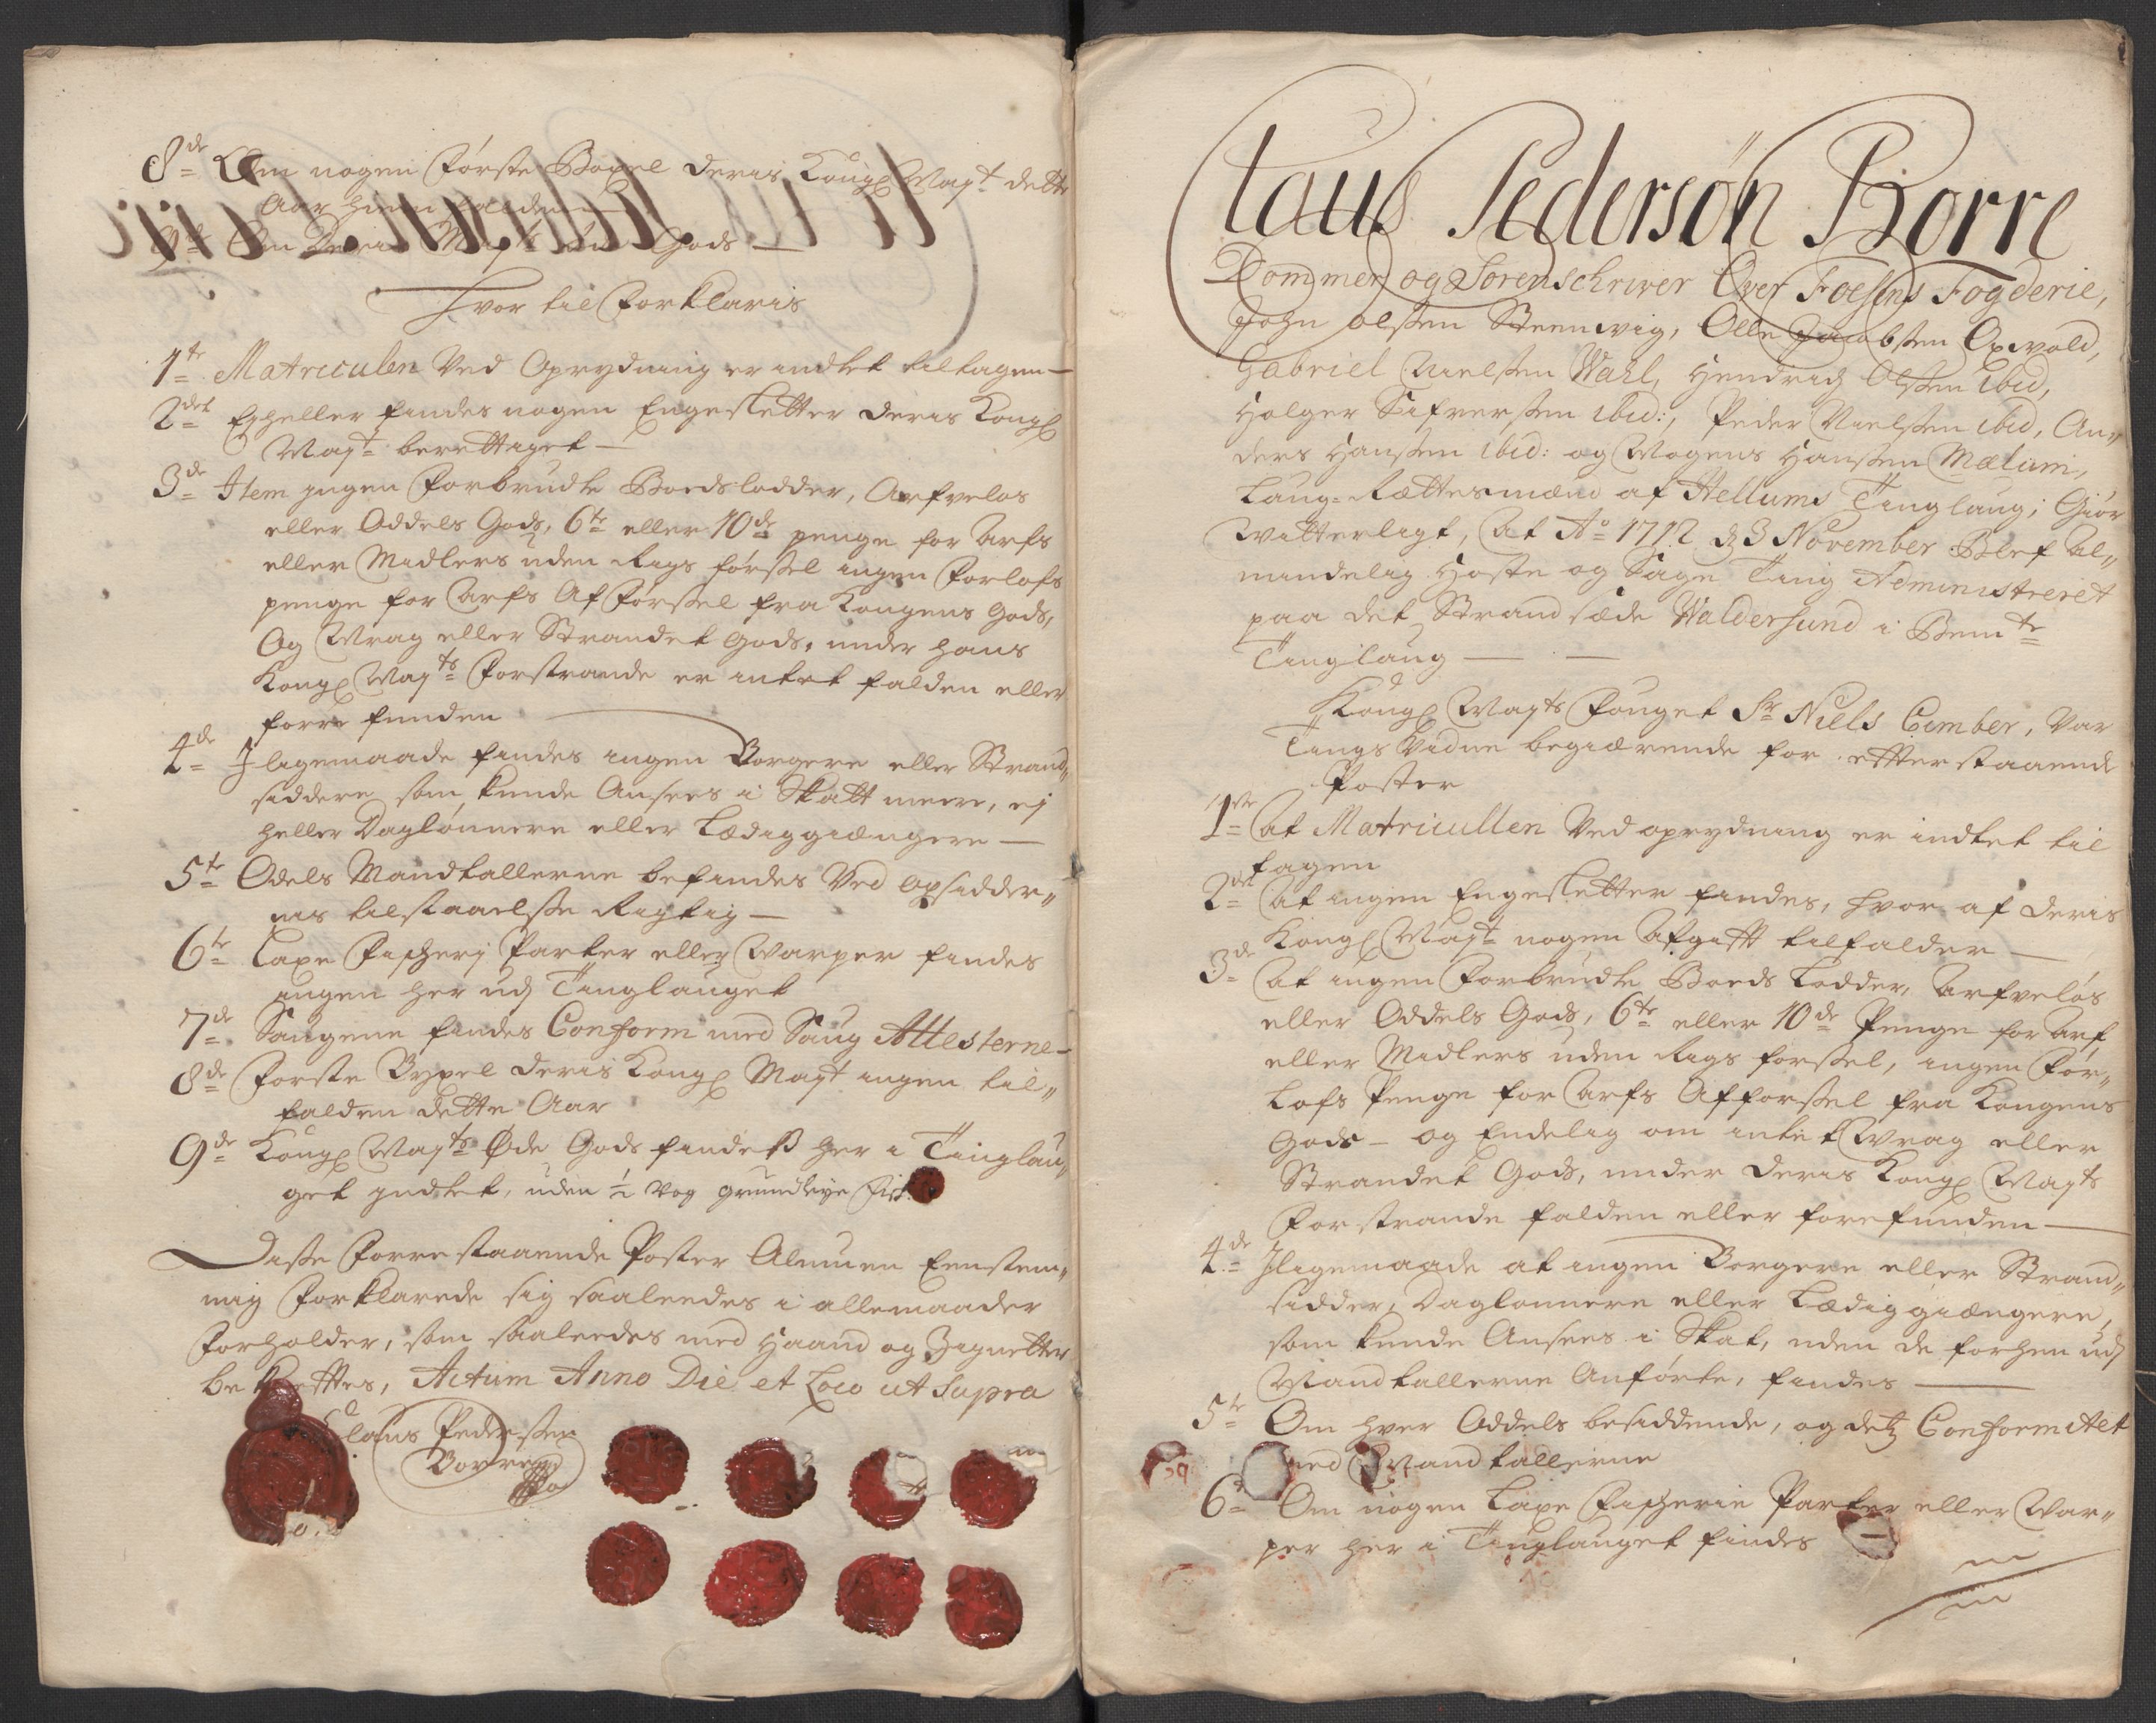 8de Om nogen Første Boxel deris Kongl Mayt dette
Aar hiem falden
9de Om Deris Mayts øde Gods
Hvor til Forklaris
1te Matriculen Ved Oprydning er indtet tiltagen
2det Ey heller findes nogen Engesletter deris Kongl
Mayt berettiget
3de Item ingen Forbrudte Boedslodder, Arfveløs
eller Oddels Gods, 6te eller 10de penge for Arfs
eller Midlers uden Rigs førssel ingen Forlofs
penge for Arfs AfFørssel fra Kongens Gods,
Og Wrag eller Strandet Gods, under hans
Kongl Mayts Forstrande er intet falden eller
forre funden
4de Iligemaade findes ingen Borgere eller Strand„
siddere som kunde Ansees i Skatt meere, ej
heller Daglønnere eller Lædiggiængere
5te Odels Mandtallerne befindes Ved Opsidder„
nis tilstaaelsse Rigtig
6te Laxe Fischerj Parter eller Warper findes
ingen her udj Tinglauget
7de Saugene findes Conform med Saug Attesterne
8de Første Byxel deris Kongl Mayt ingen til„
falden dette Aar
9de Kongl Mayts Øde Gods findeß her i Tinglau„
get indtet, uden ½ Vog grundleye Fisk
Disse Forrestaaende Poster Almuen Eenstem„
mig Forklarede sig saaleedes i allemaader
Forholder, som saaleedes med Haand og Zignetter
bekræfftes, Actum Anno Die et Loco ut Supra
Claus Pederssen
Borre
Claus Pedersøn Borre
Dommer og Sorenschriver Over Foesens Fogderie,
John Olssen Steenwig, Olle Jacobssen Opwold,
Gabriel Nielssen Wahl, Hendrich Olssen ibid,
Holger Sifverssen ibid:, Peder Nielssen ibid, An„
ders Hanssen ibid: og Mogens Hanssen Mælum,
Laug-Rættesmænd af Stellums Tinglaug; Giør
witterligt, At Ao 1712 d 3 November Blef Al„
mindelig Høste og Sage Ting Administreret
paa det Strandsæde Waldersund i Bemte
Tinglaug
Kongl Mayts Fouget Sr Niels Cimber, Var
Tings Vidne begiærende for efterstaaende
Poster
1te At Matricullen Ved oprydning er indtet til
tagen
2det At ingen Engesletter findes, hvor af deris
Kongl Mayt nogen Afgift tilfalder
3de At ingen Forbrudte Boeds Lodder, Arfveløs
eller Oddels Gods, 6te eller 10de Penge for Arf
eller Midlers uden Rigs førssel, ingen For„
Lofs Penge for Arfs Afførssel fra Kongens
Gods - og Endelig om intet Wrag eller
Strandet Gods, under deris Kongl Mayts
Forstrande falden eller forefunden
4de Iligemaade at ingen Borgere eller Strand„
sidder, Daglønnere eller Lædiggiængere,
som kunde Ansees i Skat, uden de forhen udj
Mandtallerne Anførte, findes
5te Om hver Oddels besiddende, og dets Conformitet
med Mandtallerne
6te Om nogen Laxe Fischerie Parter eller War„
per her i Tinglauget findes